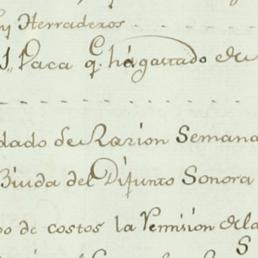 y Herraderos
Paca q. há gastado de
dado de Razion Semana
Biuda del Difunto Sonora
o de costos la Remision de la